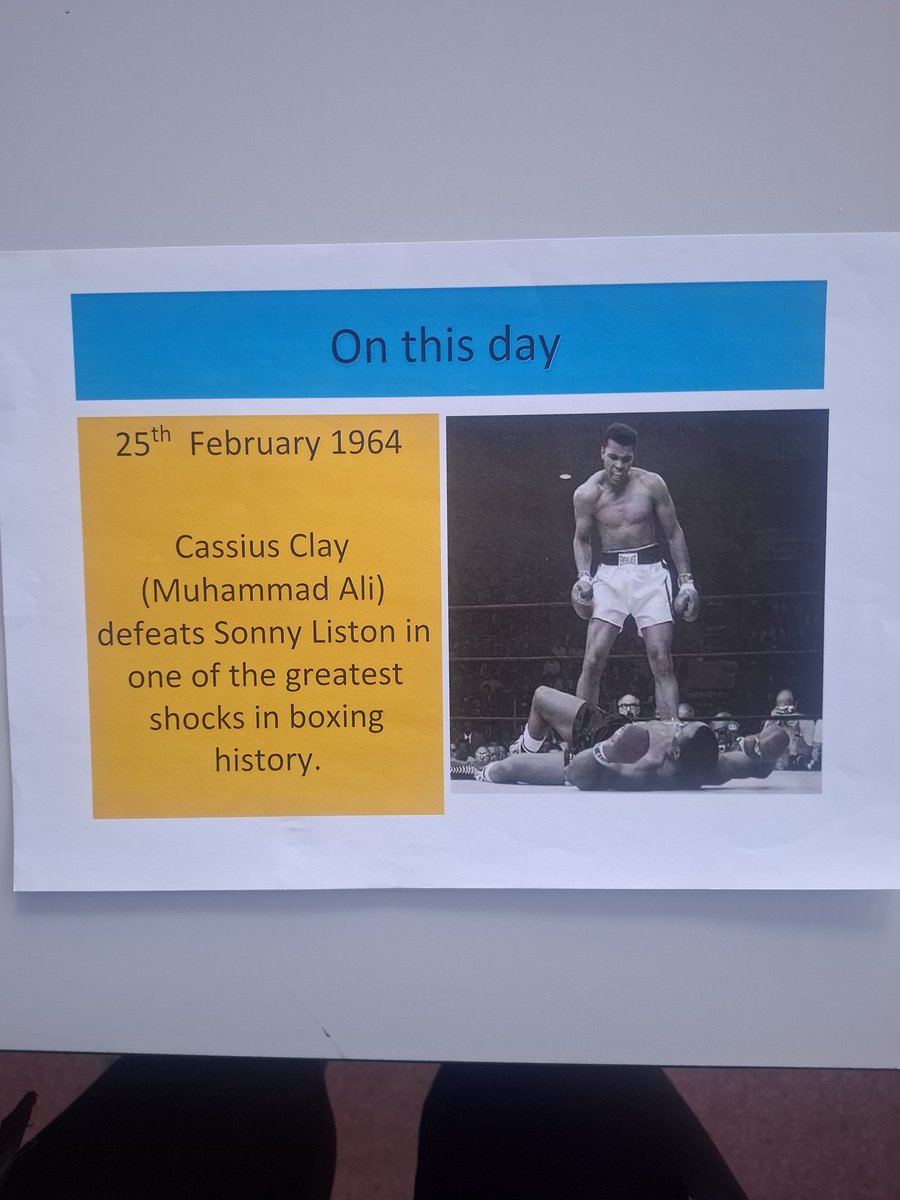 On this day
25th February 1964
Cassius Clay
(Muhammad Ali)
defeats Sonny Liston in
one of the greatest
shocks in boxing
history.